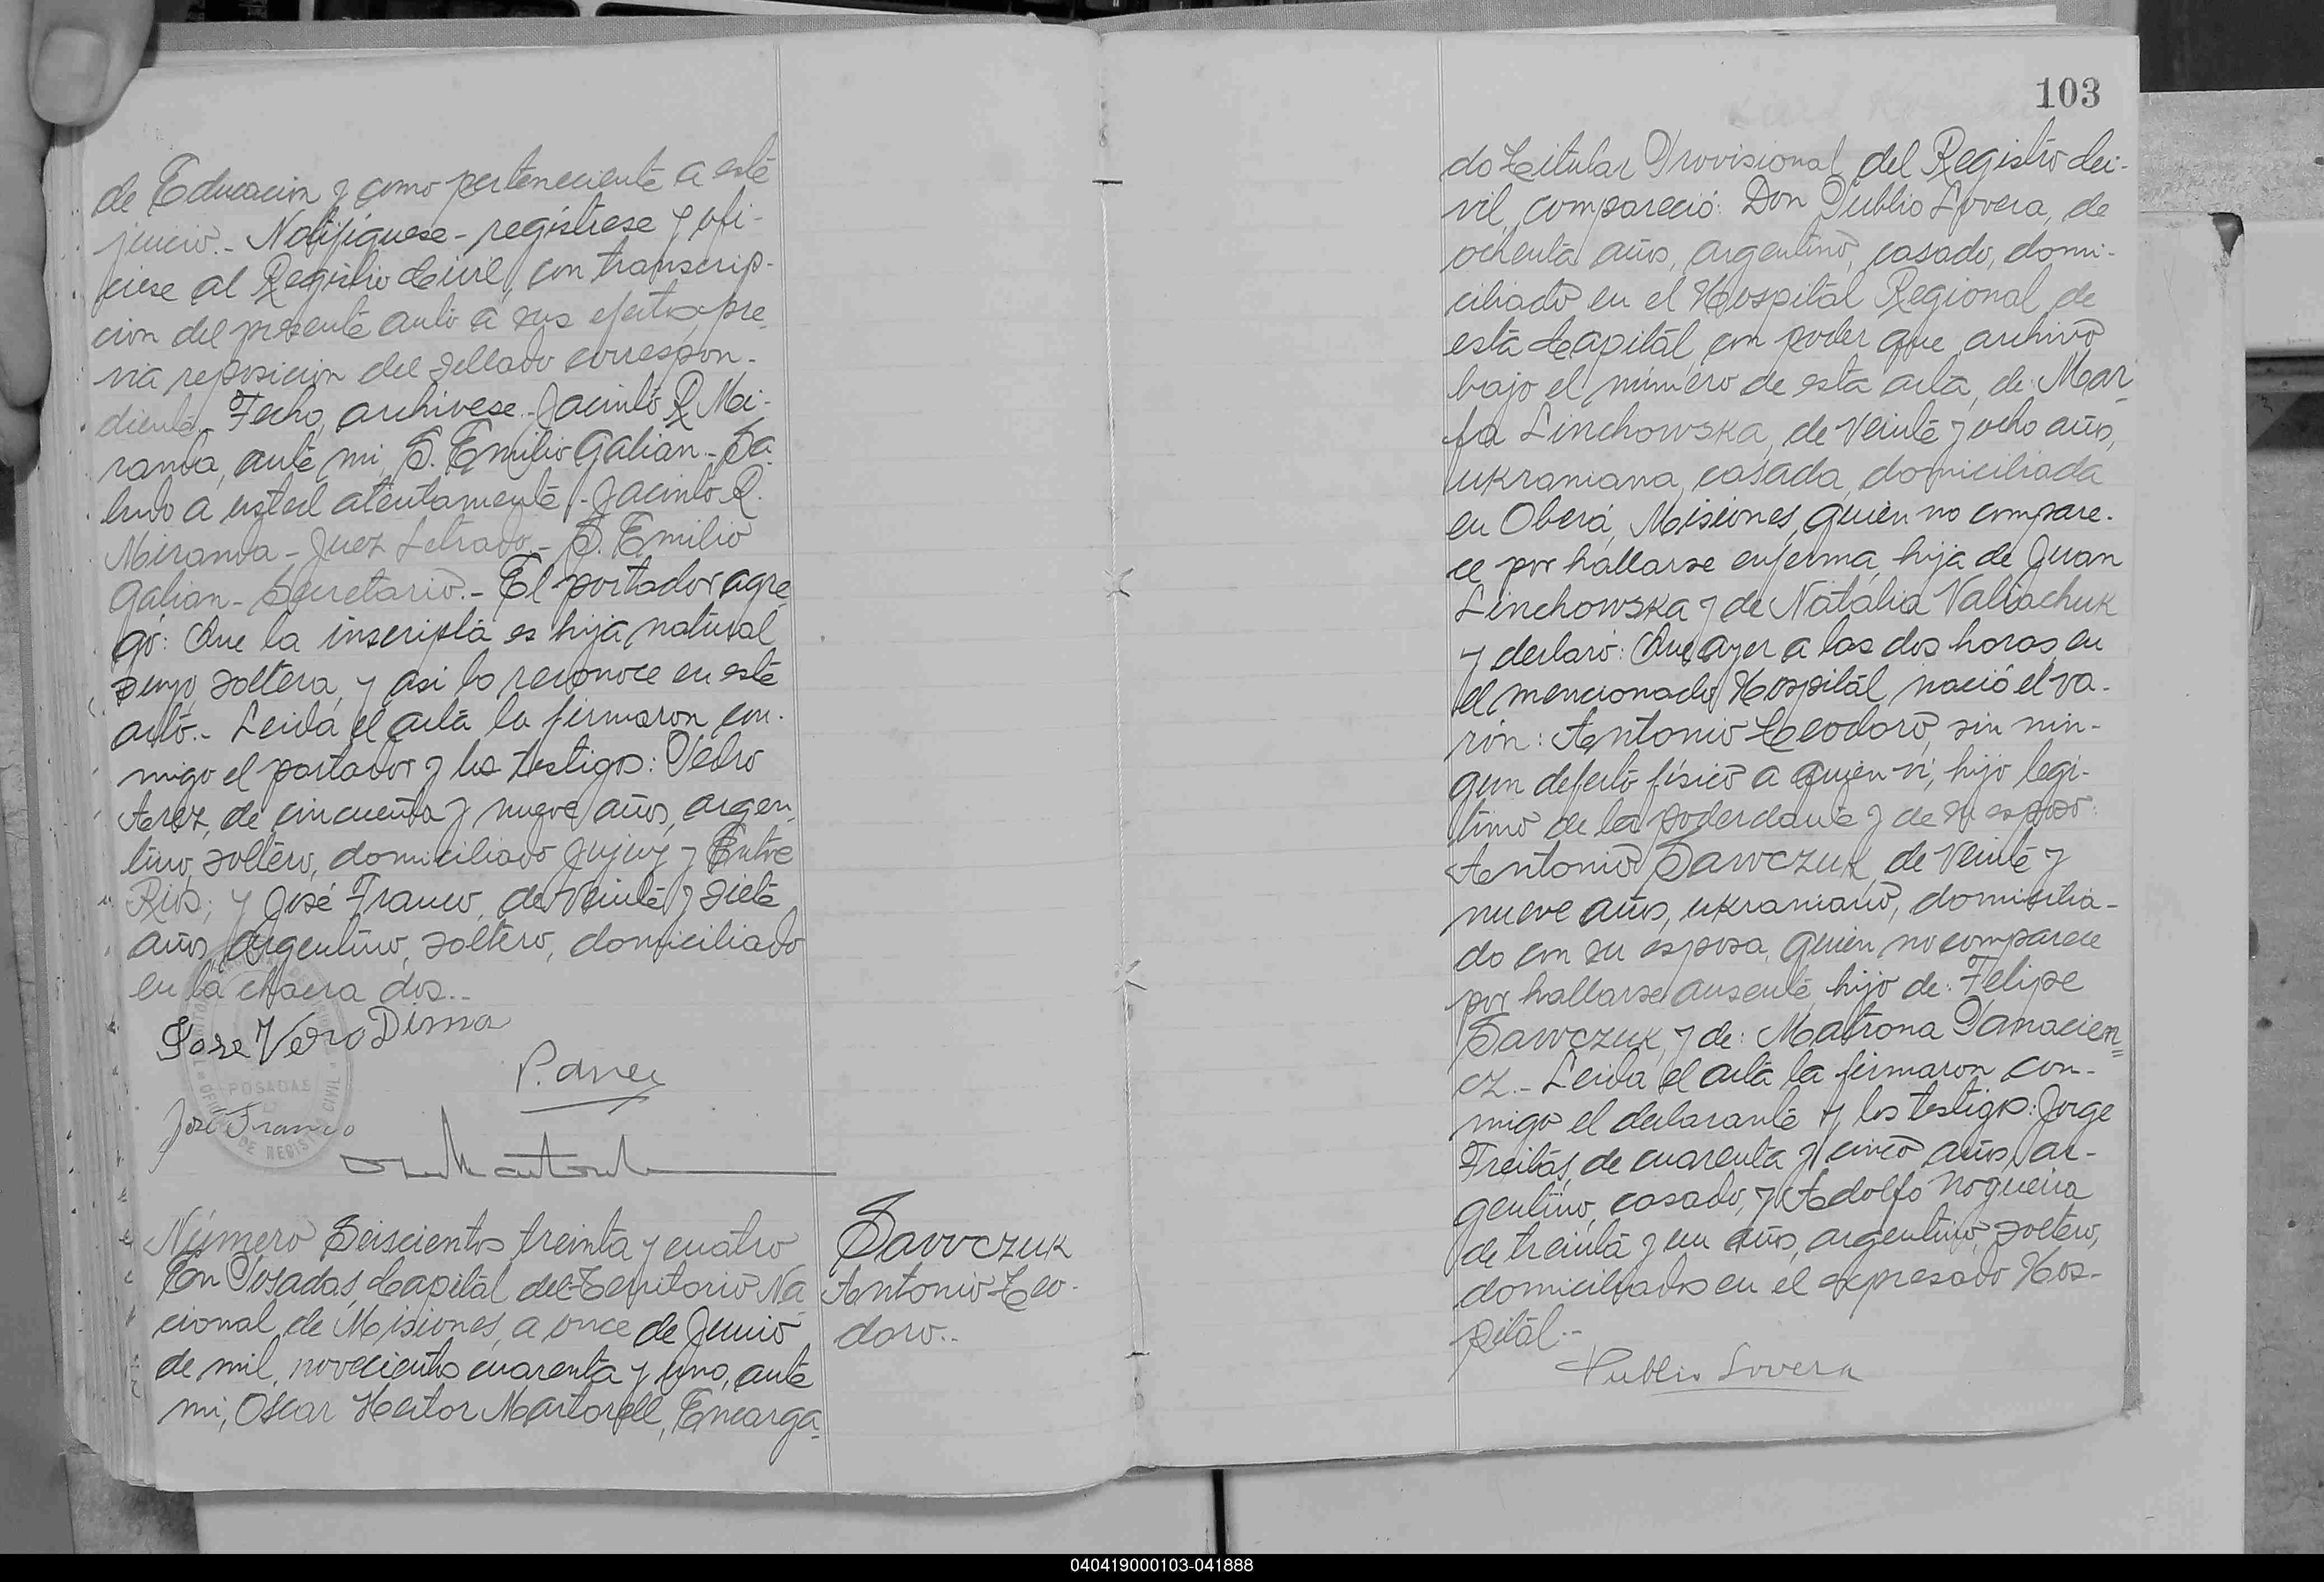 de Educacion y como perteneciente a este
juicio.- Notifiquese - registrese y ofi-
ciese al Registro Civil, con transcrip-
cion del presente auto a sus efectos, pre-
via reposicion del sellado correspon-
diente.- Fecho, archivese.- Jacinto R. Mi-
randa, ante mi, S. Emilio Galian.- Sa-
ludo a usted atentamente.- Jacinto R.
Miranda - Juez Letrado.- S. Emilio
Galian - Secretario.- El portador agre-
gó: Que la inscripta es hija natural
suya, soltera, y asi la reconoce en este
acto.- Leida el acta la firmaron con-
migo el portador y los testigos: Pedro
Arez, de cincuenta y nueve años, argen-
tino, soltero, domiciliado Jujuy y Entre
Rios; y José Franco, de veinte y siete
años, argentino, soltero, domiciliado
en la chacra dos.-
Jose Vero Disma
P. Arez
POSADAS
José Franco
Número Seiscientos treinta y cuatro
En Posadas, Capital del Territorio Na-
cional de Misiones, a once de Junio
de mil novecientos cuarenta y uno, ante
mi, Oscar Hector Martorell, Encarga-
Sawczuk
Antonio Teo-
doro.-
103
do Titular Provisional del Registro Ci-
vil, compareció: Don Publio Lovera, de
ochenta años, argentino, casado, domi-
ciliado en el Hospital Regional de
esta Capital, con poder que archivo
bajo el número de esta acta, de: Mar-
fa Linchowska, de veinte y ocho años,
ukraniana, casada, domiciliada
en Oberá, Misiones, quien no compare-
ce por hallarse enferma, hija de Juan
Linchowska y de Natalia Valiachuk
y declaró: Que ayer a las dos horas, en
el mencionado Hospital nació el va-
rón: Antonio Teodoro, sin nin-
gun defecto físico a quien ví, hijo legi-
timo de la poderdante y de su esposo:
Antonio Sawczuk, de veinte y
nueve años, ukraniano, domicilia-
do con su esposa, quien no comparece
por hallarse ausente, hijo de: Felipe
Sawczuk, y de: Matrona Panacien-
cz.- Leida el acta la firmaron con-
migo el declarante y los testigos: Jorge
Freitas, de cuarenta y cinco años, ar-
gentino, casado, y Adolfo Nogueira
de treinta y un años, argentino, soltero,
domiciliados en el expresado Hos-
pital.-
Publio Lovera
040419000103-041888